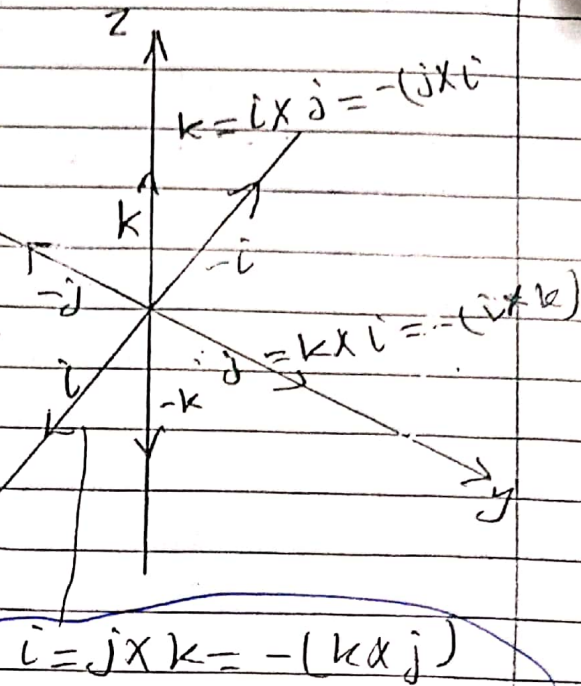 z
k = i × j = -(j × i
k
-i
-j
j = k × i = -(i × k)
i
-k
y
i = j × k = -(k × j)